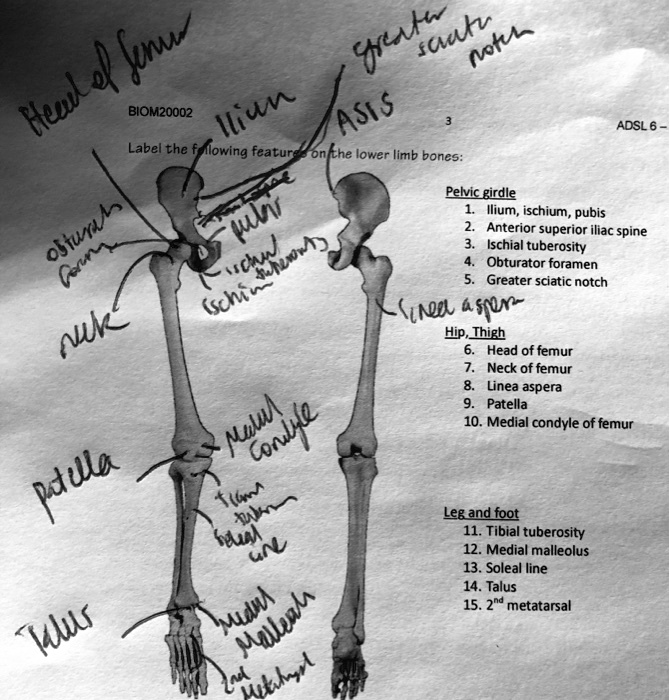 Head of femur
greater
sciatic
notch
BIOM20002
Ilium
ASIS
3
ADSL 6 –
Label the following features on the lower limb bones:
Pelvic girdle
1. Ilium, ischium, pubis
2. Anterior superior iliac spine
3. Ischial tuberosity
4. Obturator foramen
5. Greater sciatic notch
pubis
obturator
foramen
ischial
tuberosity
ischium
neck
Linea aspera
Hip, Thigh
6. Head of femur
7. Neck of femur
8. Linea aspera
9. Patella
10. Medial condyle of femur
Medial
Condyle
patella
soleal
line
Leg and foot
11. Tibial tuberosity
12. Medial malleolus
13. Soleal line
14. Talus
15. 2nd metatarsal
Talus
Medial
Malleolus
2nd
Metatarsal